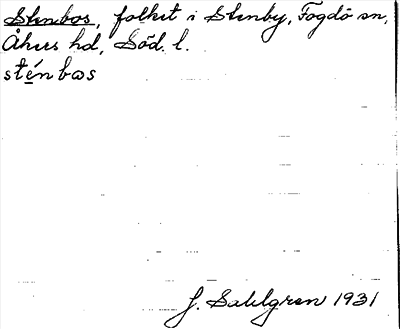 Stenbos, folket i Stenby, Fogdö sn,
Åkers hd, Söd. l.
sténbos
J. Sahlgren 1931